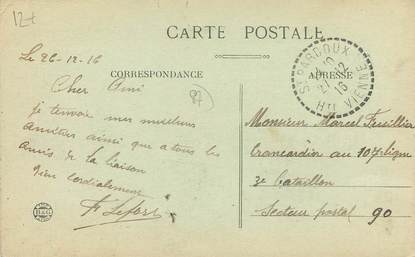 12+
CARTE POSTALE
Le 26-12-16
CORRESPONDANCE
ADRESSE
ST PARDOUX
10
27-12
16
HTE VIENNE
87
Cher Ami
je t'envoie mes meilleurs
amitiés ainsi que a tous les
amis de la liaison
Bien cordialement
F Lefort
B&G
Monsieur Marcel Feuillier
au 107e ligne
3e Bataillon
Secteur postal 90